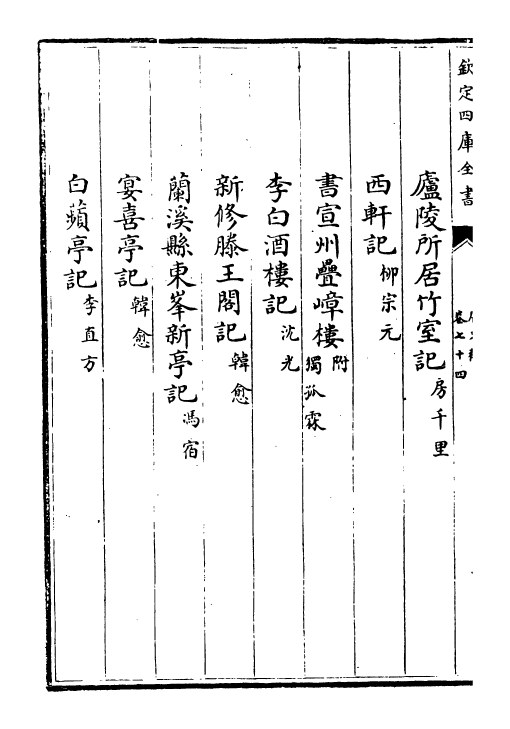 欽定四庫全書
卷七十四
廬陵所居竹室記 房千里
西軒記 柳宗元
書宣州疊嶂樓 附 獨孤霖
李白酒樓記 沈光
新修滕王閣記 韓愈
蘭溪縣東峯新亭記 馮宿
宴喜亭記 韓愈
白蘋亭記 李直方